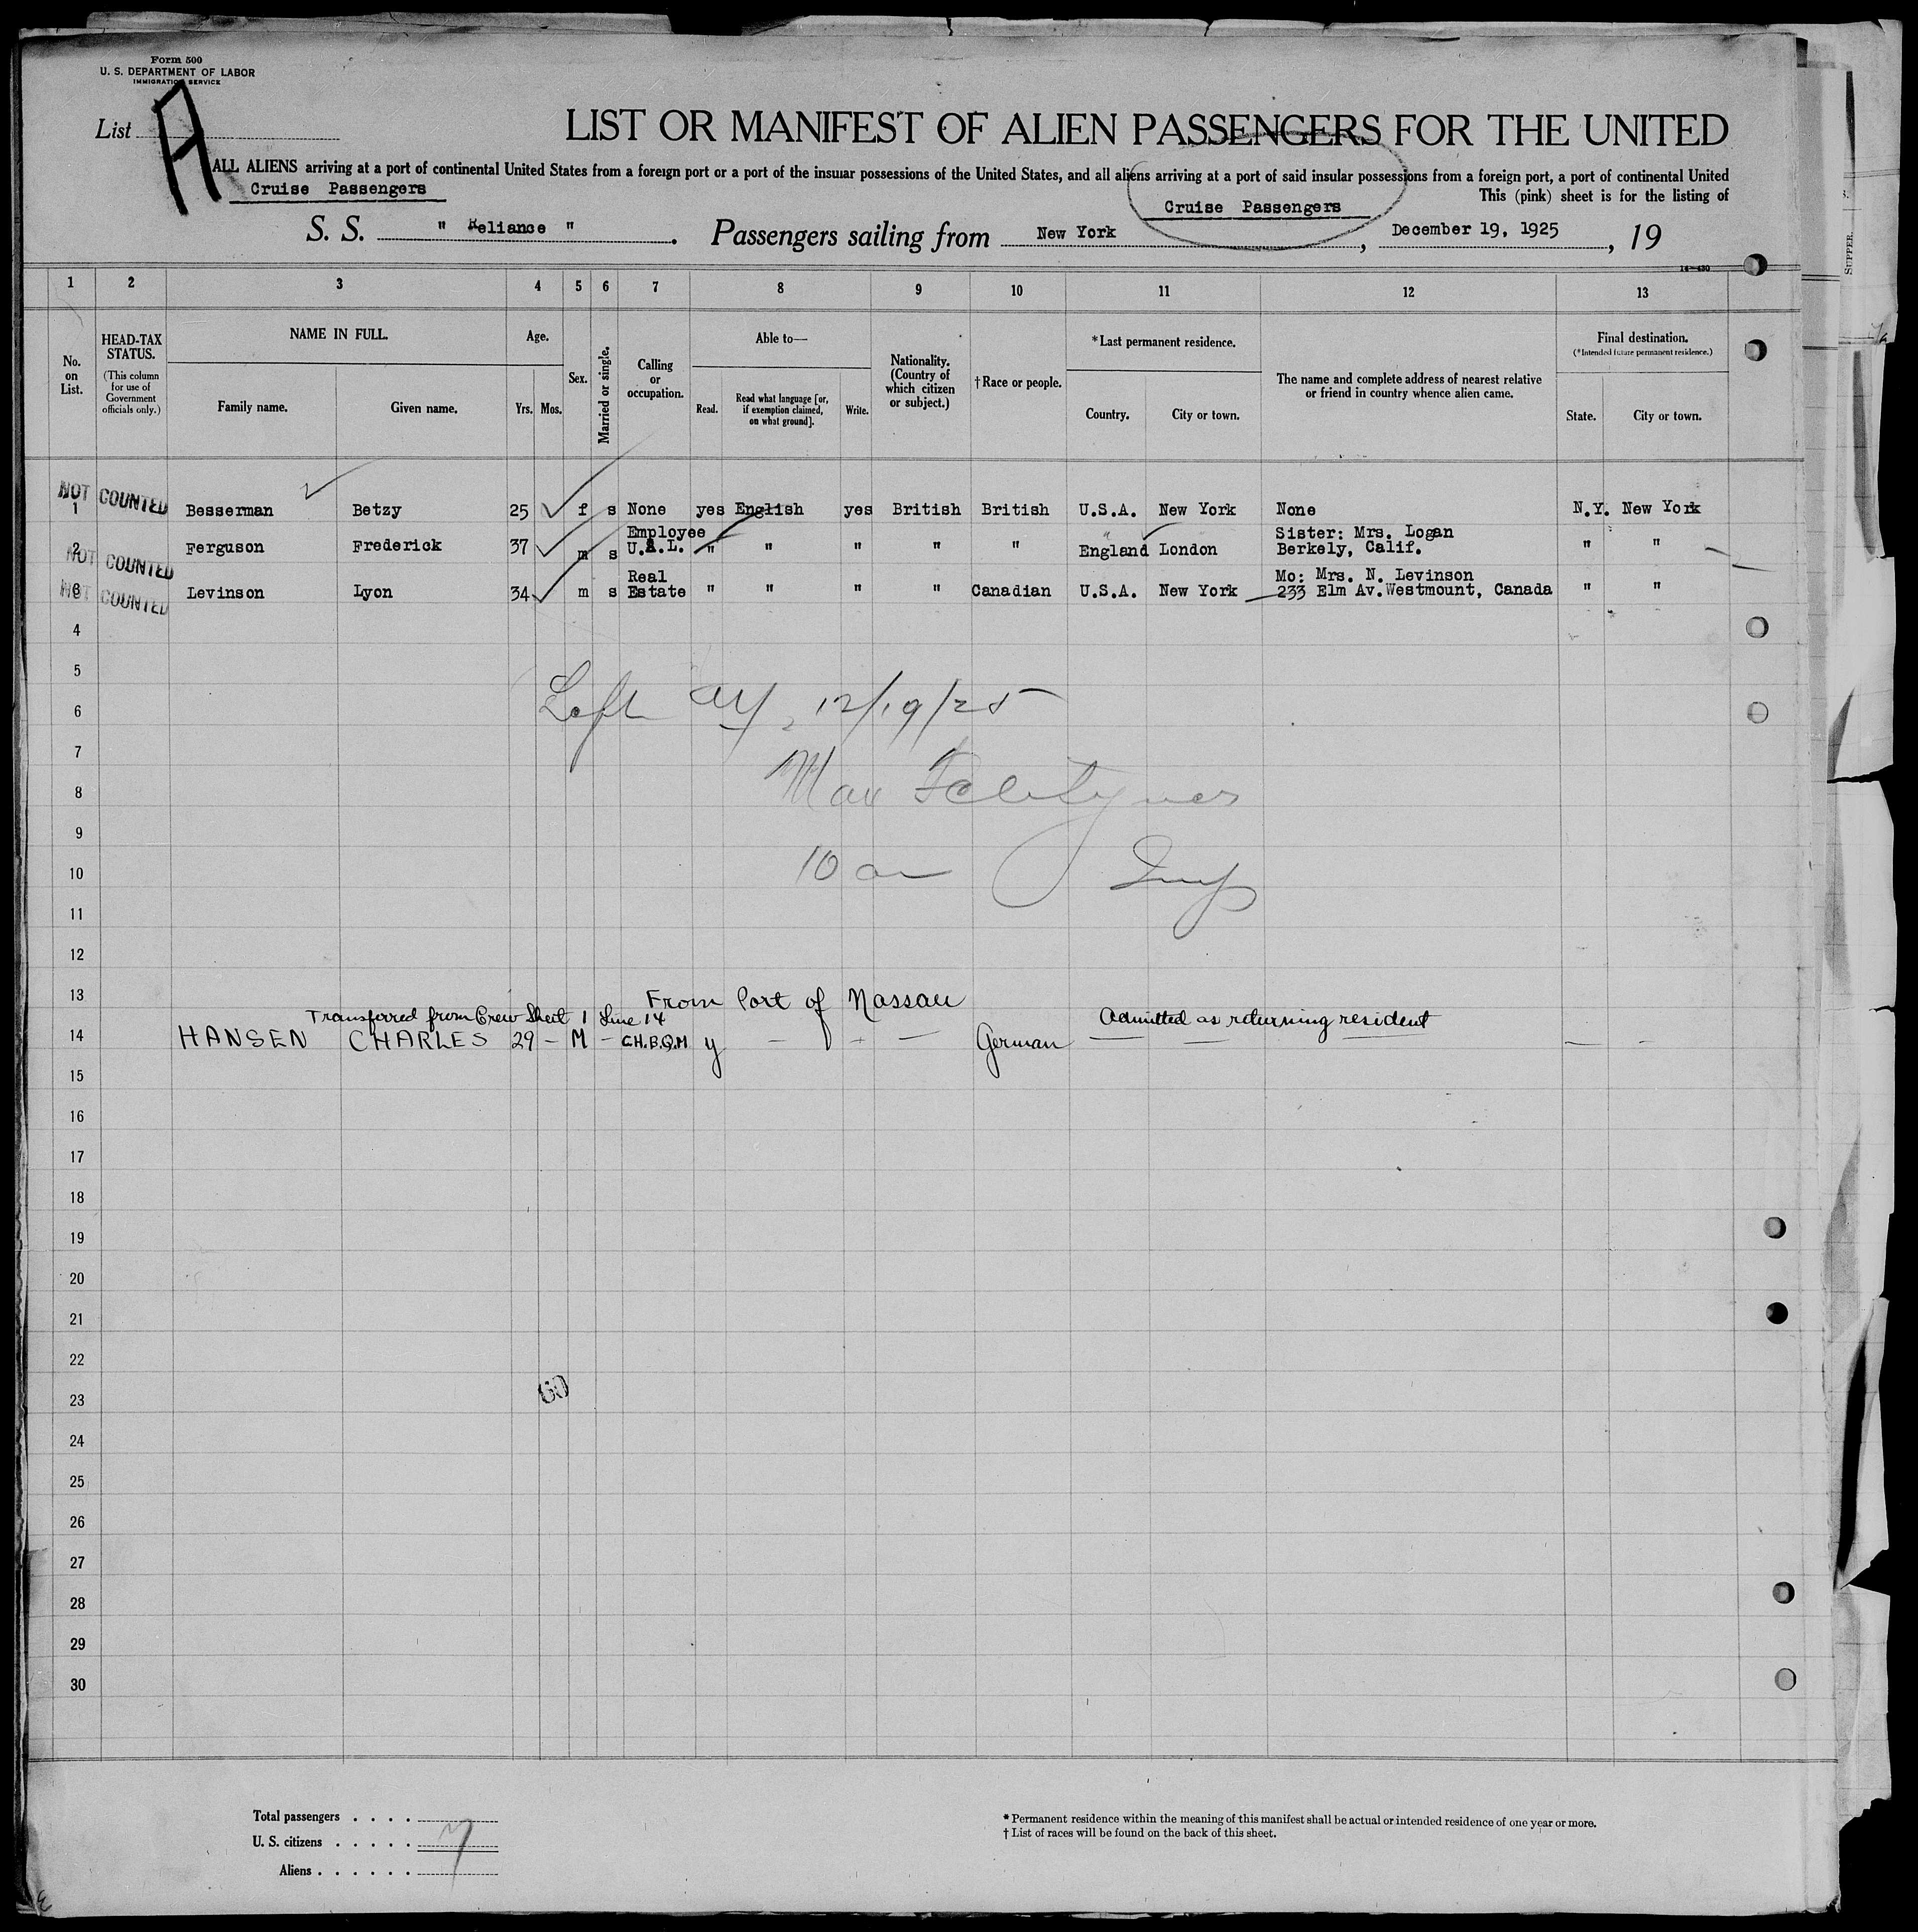 Form 500
U. S. DEPARTMENT OF LABOR
IMMIGRATION SERVICE
List A
LIST OR MANIFEST OF ALIEN PASSENGERS FOR THE UNITED
ALL ALIENS arriving at a port of continental United States from a foreign port or a port of the insular possessions of the United States, and all aliens arriving at a port of said insular possessions from a foreign port, a port of continental United
Cruise Passengers
This (pink) sheet is for the listing of
Cruise Passengers
S. S. " Reliance " . Passengers sailing from New York , December 19, 1925 , 19
14—430
SUPPER.
1 2 3 4 5 6 7 8 9 10 11 12 13
No. on List.
HEAD-TAX STATUS.
(This column for use of Government officials only.)
NAME IN FULL.
Family name. Given name.
Age.
Yrs. Mos.
Sex.
Married or single.
Calling or occupation.
Able to—
Read. Read what language [or, if exemption claimed, on what ground]. Write.
Nationality. (Country of which citizen or subject.)
†Race or people.
*Last permanent residence.
Country. City or town.
The name and complete address of nearest relative or friend in country whence alien came.
Final destination.
(*Intended future permanent residence.)
State. City or town.
NOT COUNTED
1 Besserman Betzy 25 f s None yes English yes British British U.S.A. New York None N.Y. New York
Employee Sister: Mrs. Logan
2 Ferguson Frederick 37 m s U.A.L. " " " " " England London Berkely, Calif. " "
NOT COUNTED
Real Mo: Mrs. N. Levinson
3 Levinson Lyon 34 m s Estate " " " " Canadian U.S.A. New York 233 Elm Av. Westmount, Canada " "
NOT COUNTED
4
5
6 Left 12/19/25
7
8 Max
9
10 10 am Insp
11
12
13 From Port of Nassau
Transferred from Crew Sheet 1 Line 14 Admitted as returning resident
14 HANSEN CHARLES 29 – M – CH.B.Q.M y – – – German — — — — –
15
16
17
18
19
20
21
22
23 60
24
25
26
27
28
29
30
Total passengers . . . .
U. S. citizens . . . . .
Aliens . . . . . .
* Permanent residence within the meaning of this manifest shall be actual or intended residence of one year or more.
† List of races will be found on the back of this sheet.